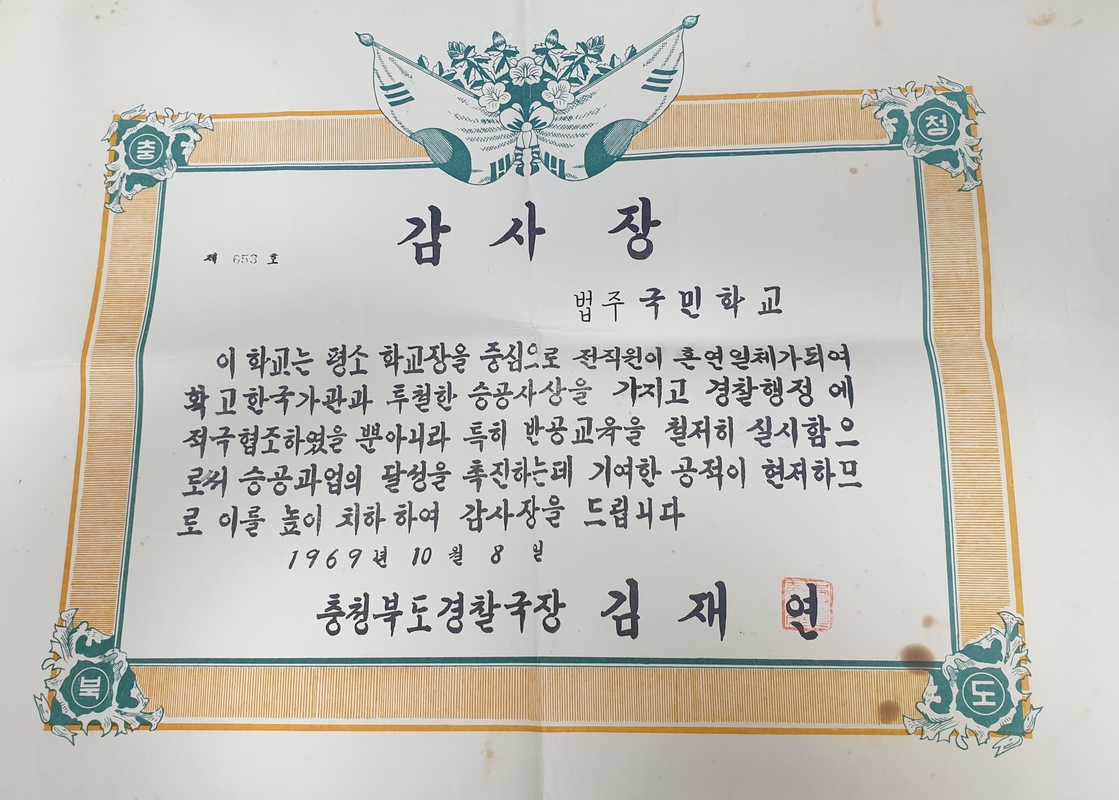 충 청
감 사 장
제 653 호
법주 국민학교
이 학교는 평소 학교장을 중심으로 전직원이 혼연일체가되여
확고한국가관과 투철한 승공사상을 가지고 경찰행정 에
적극협조하였을 뿐아니라 특히 반공교육을 철저히 실시함으
로써 승공과업의 달성을 촉진하는데 기여한 공적이 현저하므
로 이를 높이 치하 하여 감사장을 드립니다
1969년 10월 8일
충청북도경찰국장 김 재 연
북 도